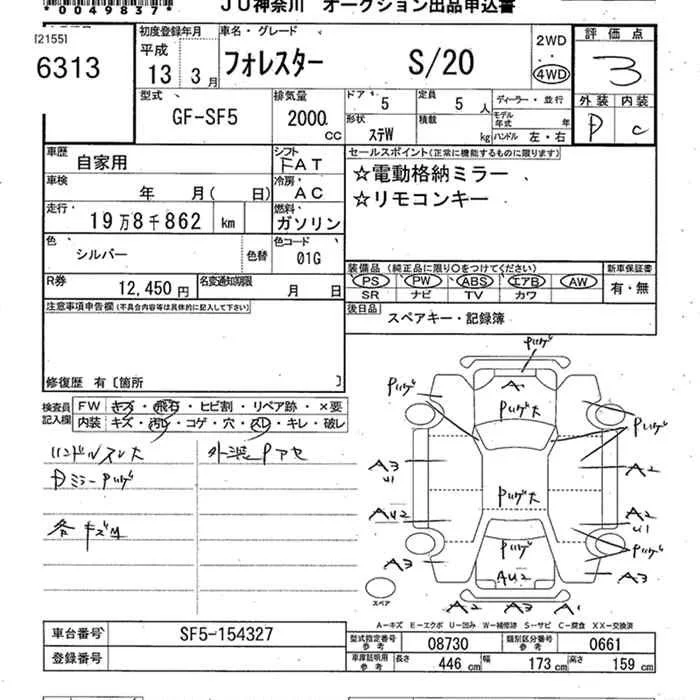 *0049837*
JU神奈川 オークション出品申込書
[2155]
6313
初度登録年月
平成
13 3月
車名・グレード
フォレスター S/20
2WD
4WD
評価点
3
外装 内装
D C
型式
GF-SF5
排気量
2000 CC
ドア 5
定員 5 人
ディーラー・並行
モデル年式 年
形状 ステW
積載 kg
ハンドル 左・右
車歴
自家用
シフト
FAT
車検
年 月( 日)
冷房
AC
走行
19万8千862 km
燃料
ガソリン
色
シルバー
色替
色コード
01G
R券
12,450円
名変通知期限
月 日
セールスポイント(正常に機能するものに限ります)
☆電動格納ミラー
☆リモコンキー
装備品 (純正品に限り○をつけてください)
PS PW ABS エアB AW
SR ナビ TV カワ
新車保証書
有・無
後日品
スペアキー・記録簿
注意事項申告欄(不具合内容等は具体的に記入して下さい)
修復歴 有〔箇所 〕
検査員記入欄
FW キズ・飛石・ヒビ割・リペア跡・×要
内装 キズ・汚レ・コゲ・穴・スレ・キレ・破レ
ハンドルスレ大
Dミラーハゲ
各キズ
外装Pアセ
Pハゲ
A
Pハゲ大
Pハゲ
Pハゲ
A3
U1
A2
Pハゲ大
AU2
A2
U1
Pハゲ
Pハゲ
A3
AU2
A3
A2 A3 A1
スペア
A-キズ E-エクボ U-凹み W-補修跡 S-サビ C-腐食 XX-交換済
車台番号
SF5-154327
登録番号
型式指定番号 参考
08730
類別区分番号 参考
0661
車庫証明用 参考
長さ 446 cm
幅 173 cm
高さ 159 cm